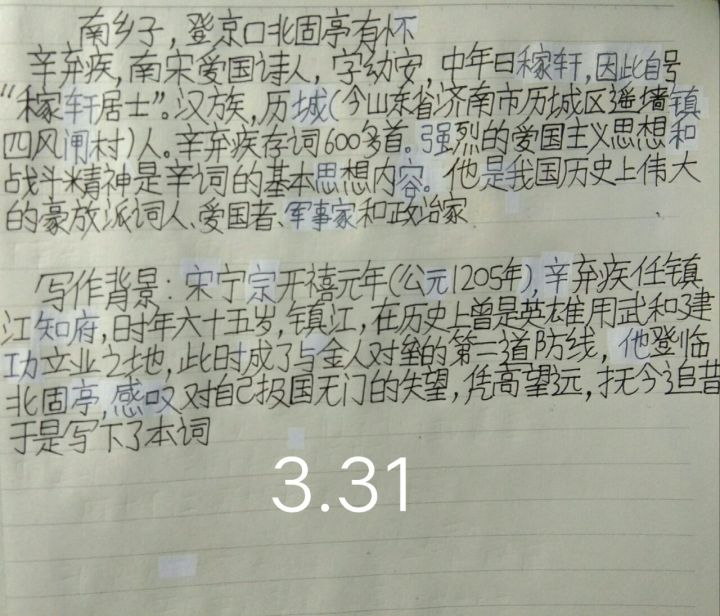 南乡子，登京口北固亭有怀
辛弃疾，南宋爱国诗人，字幼安，中年曰稼轩，因此自号
“稼轩居士”。汉族，历城（今山东省济南市历城区遥墙镇
四风闸村）人。辛弃疾存词600多首。强烈的爱国主义思想和
战斗精神是辛词的基本思想内容。他是我国历史上伟大
的豪放派词人、爱国者、军事家和政治家
写作背景：宋宁宗开禧元年（公元1205年），辛弃疾任镇
江知府，时年六十五岁，镇江，在历史上曾是英雄用武和建
功立业之地，此时成了与金人对垒的第二道防线，他登临
北固亭，感叹对自己报国无门的失望，凭高望远，抚今追昔
于是写下了本词
3.31